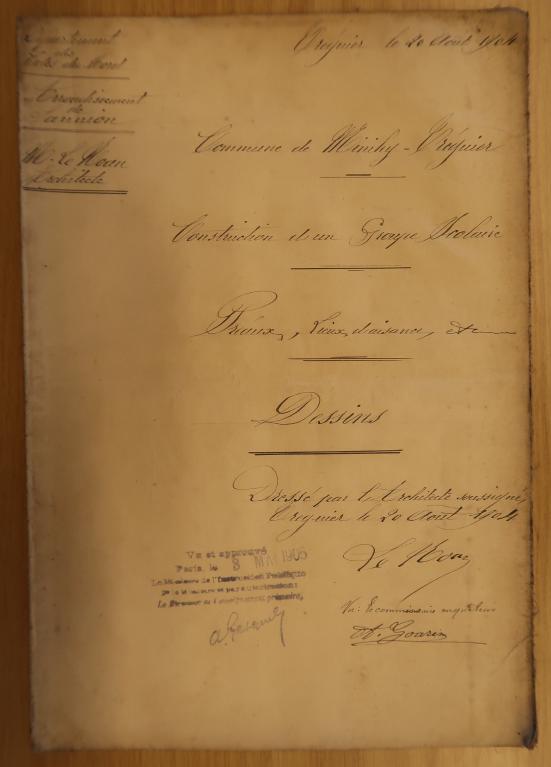 Département
des
Côtes du Nord
Arrondissement
de
Lannion
Mr Le Moan
Architecte
Tréguier le 20 Août 1904
Commune de Minihy-Tréguier
Construction d'un Groupe Scolaire
Préaux, Lieux d'aisance, etc
Dessins
Dressé par l'Architecte soussigné
Tréguier le 20 Août 1904
Le Moan
Vu et approuvé
Paris, le 8 MAI 1905
Le Ministre de l'Instruction Publique
Pour le Ministre et par autorisation:
Le Directeur de l'enseignement primaire,
Vu: Le commissaire enquêteur